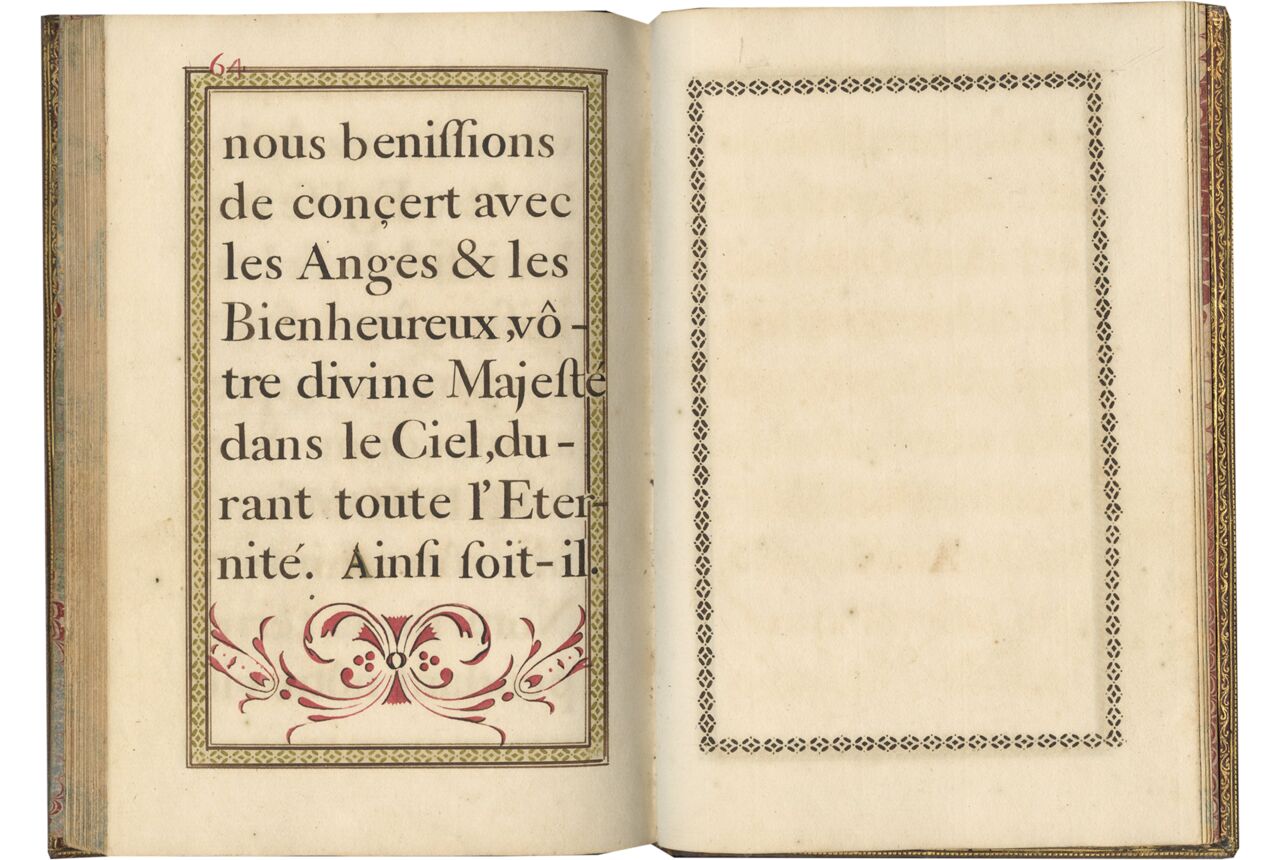 64
nous beniſſions
de conçert avec
les Anges & les
Bienheureux, vô-
tre divine Majeſté
dans le Ciel, du-
rant toute l'Eter-
nité. Ainſi ſoit-il.